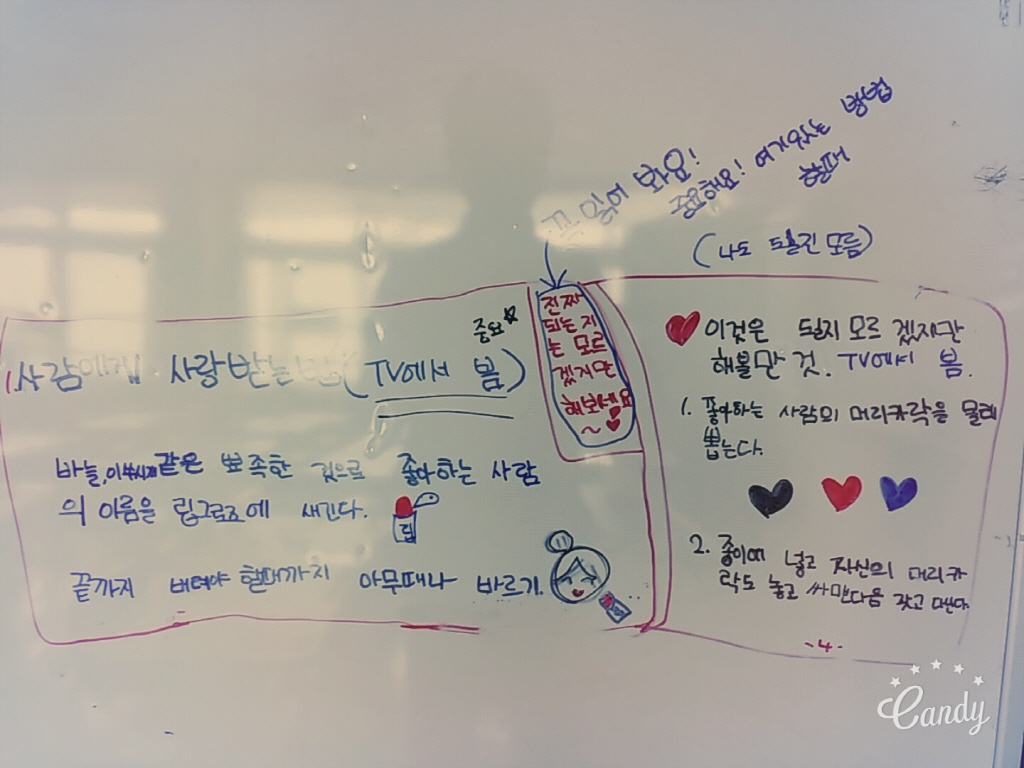 꼭 읽어 봐요!
중요해요! 여기있는 방법
할때
(나도 될진 모름)
진짜
되는지
는 모르
겠지만
해보세요
~♥
중요☆
1. 사람에게 사랑받는법(TV에서 봄)
바늘,이쑤시개같은 뾰족한 것으로 좋아하는 사람
의 이름을 립그로즈에 새긴다.
립
끝까지 버려야 할때까지 아무때나 바르기.
♥이것은 될지 모르겠지만
해볼만 것. TV에서 봄.
1. 좋아하는 사람의 머리카락을 몰래
뽑는다.
2. 종이에 넣고 자신의 머리카
락도 놓고 싸맨다음 갖고
-4-
Candy